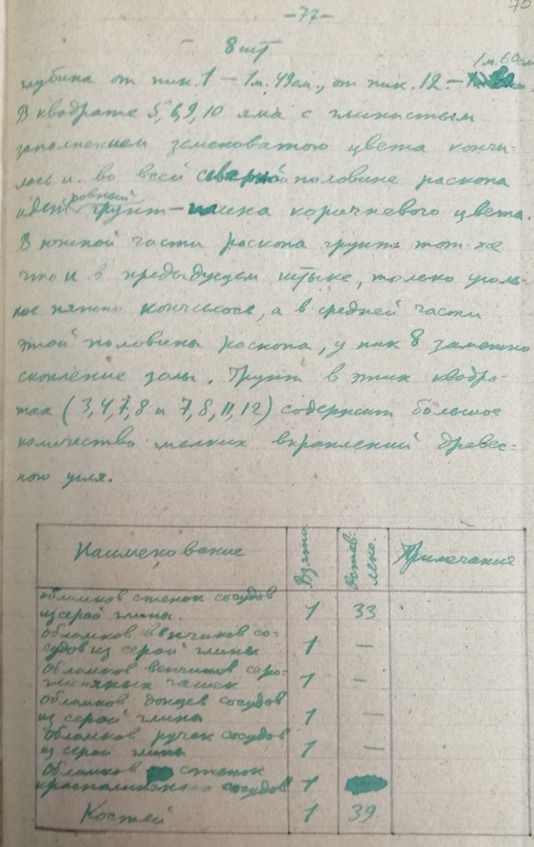 -77-
8 шт
глубина от пик. 1 - 1м. 49см., от пик. 12. - 1м. 60см
В квадрате 5,6,9,10 яма с глинистым
заполнением зеленоватого цвета кончи-
лась и во всей северной половине раскопа
идет ровный грунт - глина коричневого цвета.
В южной части раскопа грунт тот-же
что и в предыдущем штыке, только уголь-
ное пятно кончилось, а в средней части
этой половины раскопа, у пик 8 заметно
скопление золы. Грунт в этих квадра-
тах (3,4,7,8 и 7,8,11,12) содержит большое
количество мелких вкраплений древес-
ного угля.
Наименование Взято Оставлено. Примечание
обломков стенок сосудов
из серой глины. 1 33
обломков венчиков со-
судов из серой глины 1 -
обломков венчиков серо-
глиняных чашек 1 -
обломков донцев сосудов
из серой глины 1 -
обломков ручек сосудов
из серой глины 1 -
обломков стенок
красноглиняных сосудов 1
Костей 1 39